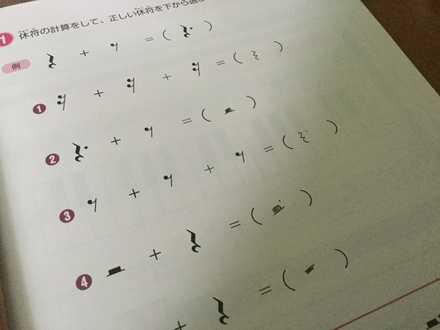 1 休符の計算をして、正しい休符を下から選
例 𝄽 + 𝄾 = ( 𝄽. )
1 𝄿 + 𝄿 + 𝄿 = ( )
2 𝄽. + 𝄾 = ( 𝄼 )
3 𝄾 + 𝄾 + 𝄾 = ( 𝄽. )
4 𝄼 + 𝄽 = ( 𝄼. )
+ 𝄽 = ( )